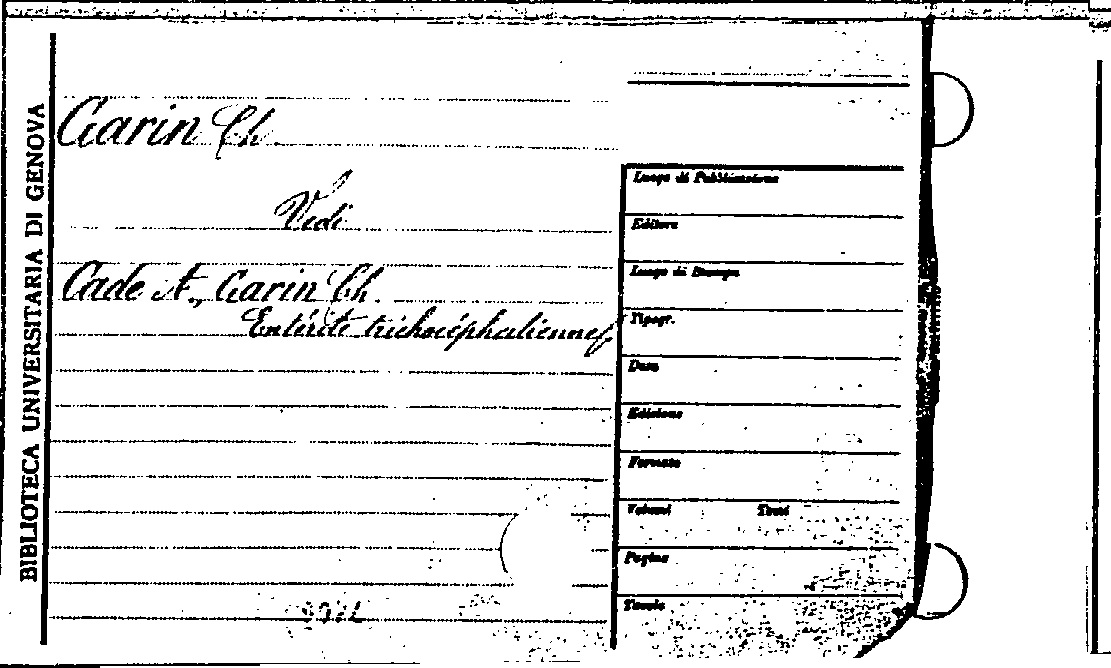 BIBLIOTECA UNIVERSITARIA DI GENOVA
Garin Ch.
Vedi
Cade A., Garin Ch.
Entérite trichocéphalienne
Luogo di Pubblicazione
Editore
Luogo di Stampa
Tipogr.
Data
Edizione
Formato
Volumi Tomi
Pagine
Tavole